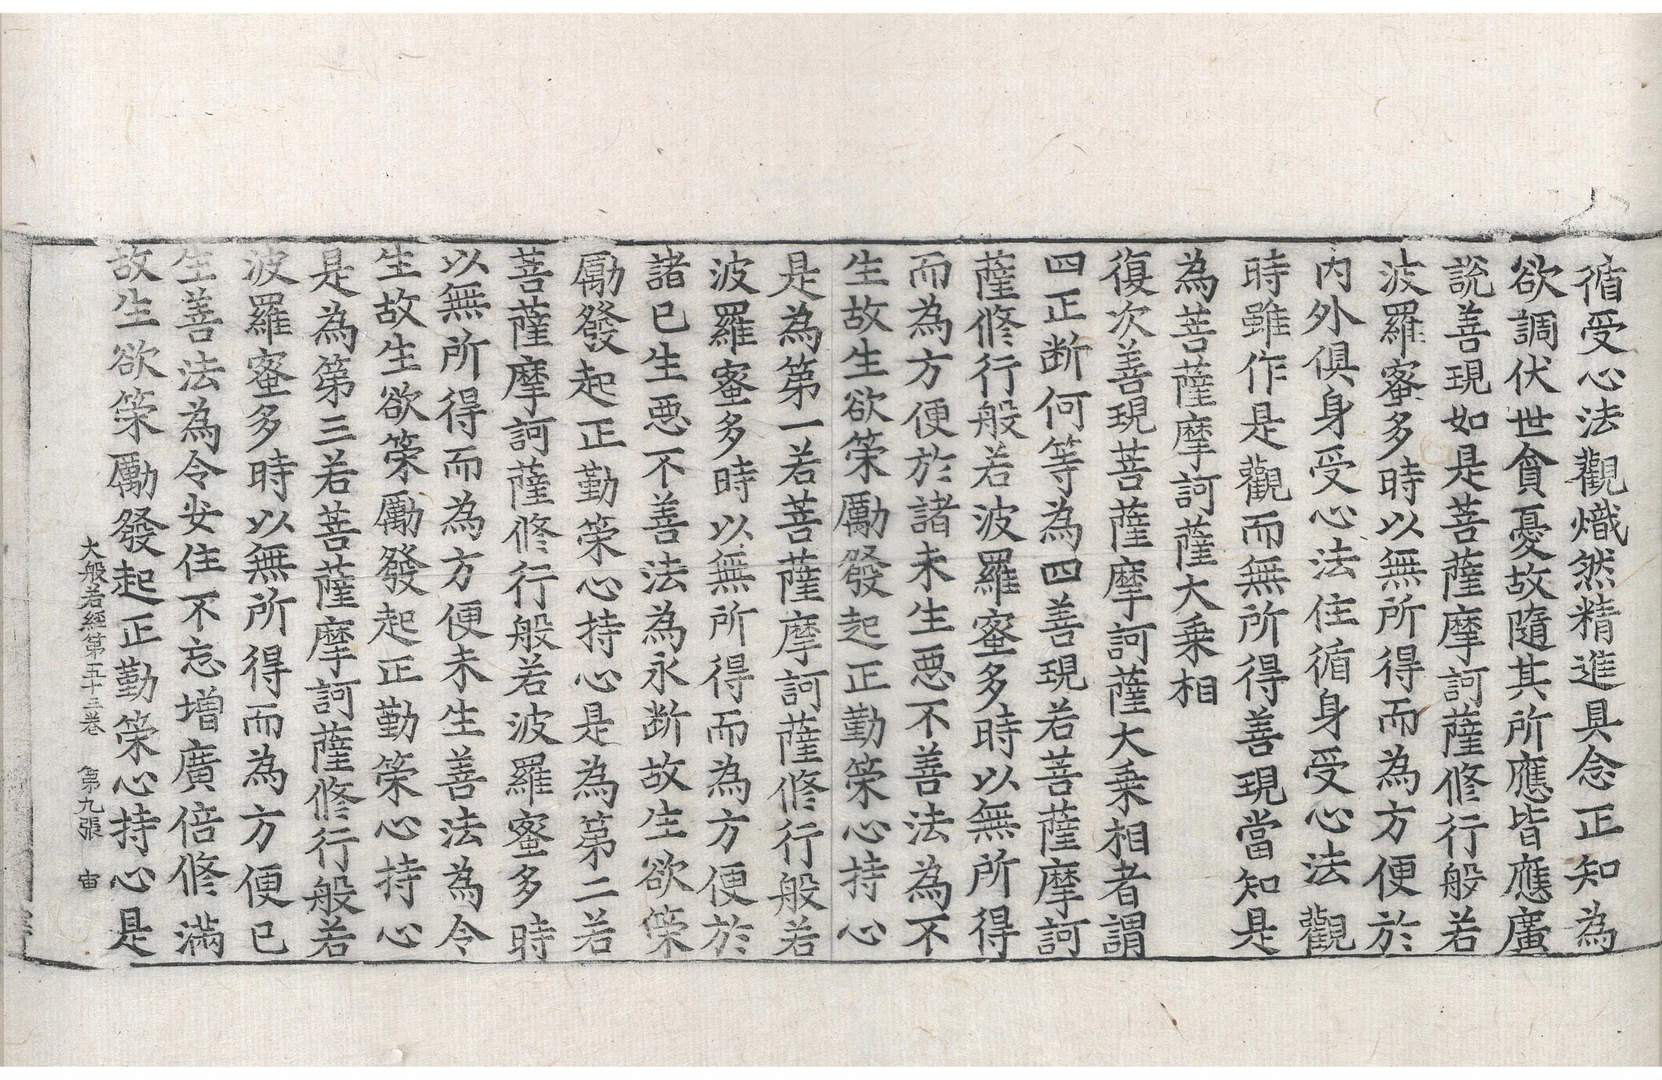 循受心法觀熾然精進具念正知為
欲調伏世貪憂故隨其所應皆應廣
說善現如是菩薩摩訶薩修行般若
波羅蜜多時以無所得而為方便於
內外俱身受心法住循身受心法觀
時雖作是觀而無所得善現當知是
為菩薩摩訶薩大乗相
復次善現菩薩摩訶薩大乗相者謂
四正断何等為四善現若菩薩摩訶
薩修行般若波羅蜜多時以無所得
而為方便於諸未生惡不善法為不
生故生欲策勵發起正勤策心持心
是為第一若菩薩摩訶薩修行般若
波羅蜜多時以無所得而為方便於
諸已生惡不善法為永断故生欲策
勵發起正勤策心持心是為第二若
菩薩摩訶薩修行般若波羅蜜多時
以無所得而為方便未生善法為令
生故生欲策勵發起正勤策心持心
是為第三若菩薩摩訶薩修行般若
波羅蜜多時以無所得而為方便已
生善法為令安住不忘增廣倍修滿
故生欲策勵發起正勤策心持心是
大般若經第五十三卷 第九張 宙